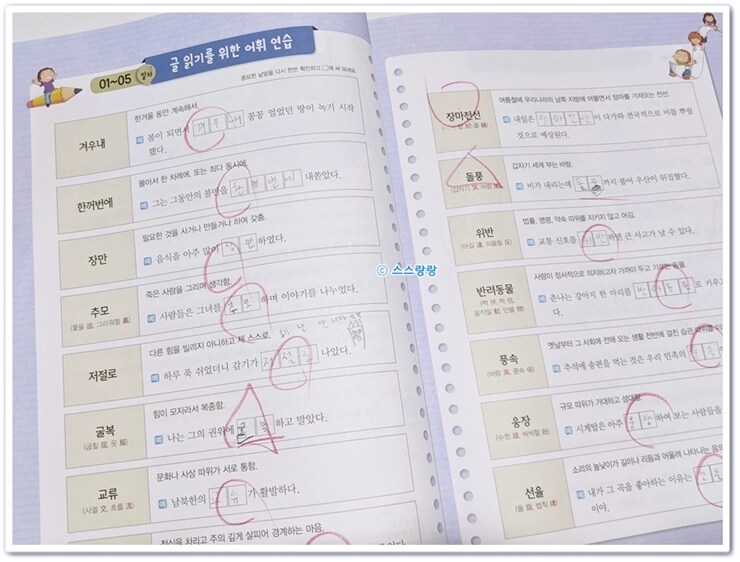 01~05 일차
글 읽기를 위한 어휘 연습
중요한 낱말을 다시 한번 확인하고 □에 써 보세요.
겨우내
한겨울 동안 계속해서.
예 봄이 되면서 겨우내 꽁꽁 얼었던 땅이 녹기 시작
했다.
한꺼번에
몰아서 한 차례에. 또는 죄다 동시에.
예 그는 그동안의 불만을 한꺼번에 내쏟았다.
장만
필요한 것을 사거나 만들거나 하여 갖춤.
예 음식을 아주 많이 장만하였다.
추모
(쫓을 追, 그리워할 慕)
죽은 사람을 그리며 생각함.
예 사람들은 그녀를 추모하며 이야기를 나누었다.
저절로
다른 힘을 빌리지 아니하고 제 스스로.
예 하루 푹 쉬었더니 감기가 저절로 나았다.
굴복
(굽힐 屈, 옷 服)
힘이 모자라서 복종함.
예 나는 그의 권위에 굴복하고 말았다.
교류
(사귈 交, 흐를 流)
문화나 사상 따위가 서로 통함.
예 남북한의 교류가 활발하다.
정신을 차리고 주의 깊게 살피어 경계하는 마음.
장마전선
여름철에 우리나라의 남쪽 지방에 머물면서 장마를 가져오는 전선.
예 내일은 장마전선이 다가와 전국적으로 비를 뿌릴
것으로 예상된다.
돌풍
갑자기 세게 부는 바람.
예 비가 내리는데 돌풍까지 불어 우산이 뒤집혔다.
위반
법률, 명령, 약속 따위를 지키지 않고 어김.
예 교통 신호를 위반하면 큰 사고가 날 수 있다.
반려동물
사람이 정서적으로 의지하고자 가까이 두고 기르는 동물.
예 춘나는 강아지 한 마리를 반려동물로 키우고
풍속
(바람 風, 풍속 俗)
옛날부터 그 사회에 전해 오는 생활 전반에 걸친 습관 따위를
예 추석에 송편을 먹는 것은 우리 민족의 풍속
웅장
규모 따위가 거대하고 성대함.
예 시계탑은 아주 웅장하여 보는 사람들을
선율
소리의 높낮이가 길이나 리듬과 어울려 나타나는 음의
예 내가 그 곡을 좋아하는 이유는 선율
이야.
© 스스랑랑